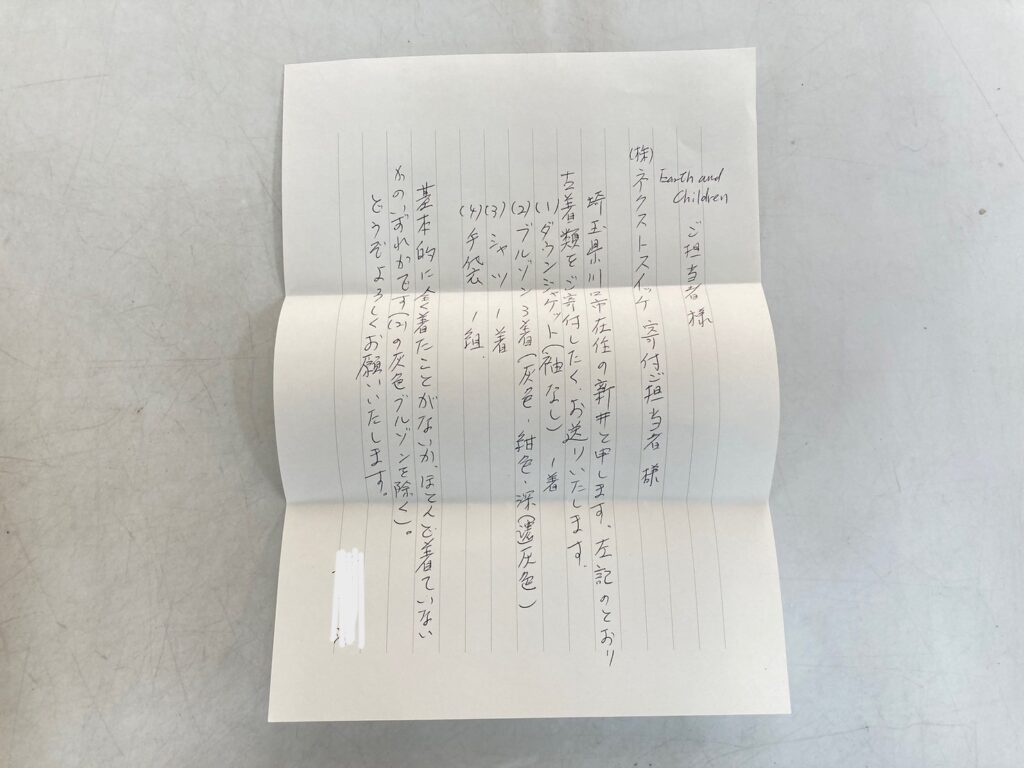 Earth and Children ご担当者様
(株)ネクストスイッチ 寄付ご担当者 様
埼玉県川口市在住の新井と申します。左記のとおり
古着類をご寄付したく、お送りいたします。
(1)ダウンジャケット(袖なし) 1着
(2)ブルゾン3着(灰色・紺色・深(濃)灰色)
(3)シャツ 1着
(4)手袋 1組.
基本的に全く着たことがないか、ほとんど着ていない
かのいずれかです((2)の灰色ブルゾンを除く)。
どうぞよろしくお願いいたします。